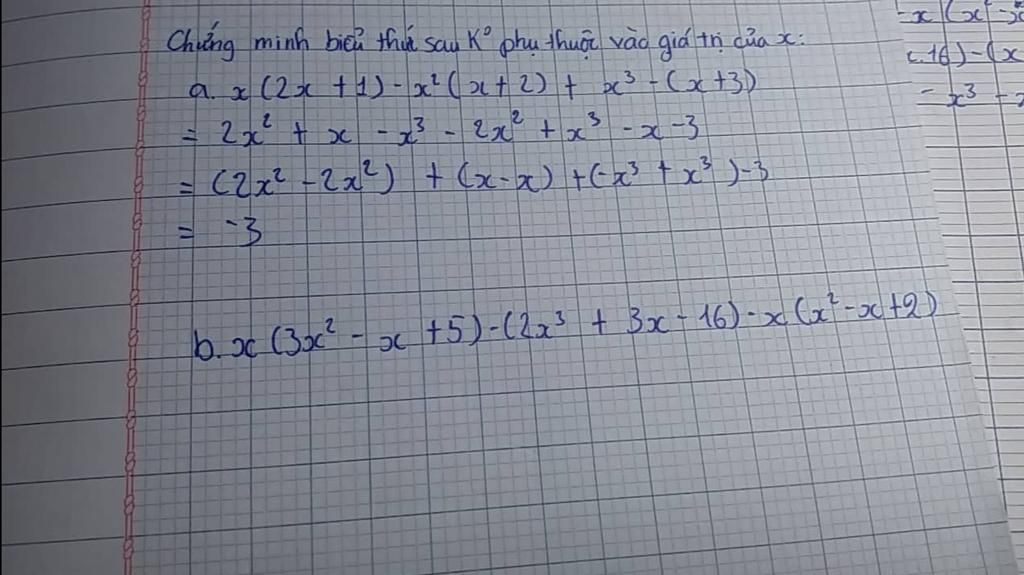 Chứng minh biểu thức sau K° phụ thuộc vào giá trị của x:
a. x(2x + 1) - x²(x + 2) + x³ - (x + 3)
= 2x² + x - x³ - 2x² + x³ - x - 3
= (2x² - 2x²) + (x - x) + (-x³ + x³) - 3
= -3
b. x(3x² - x + 5) - (2x³ + 3x - 16) - x(x² - x + 2)
- x(x²
. 16) - (x
= x³